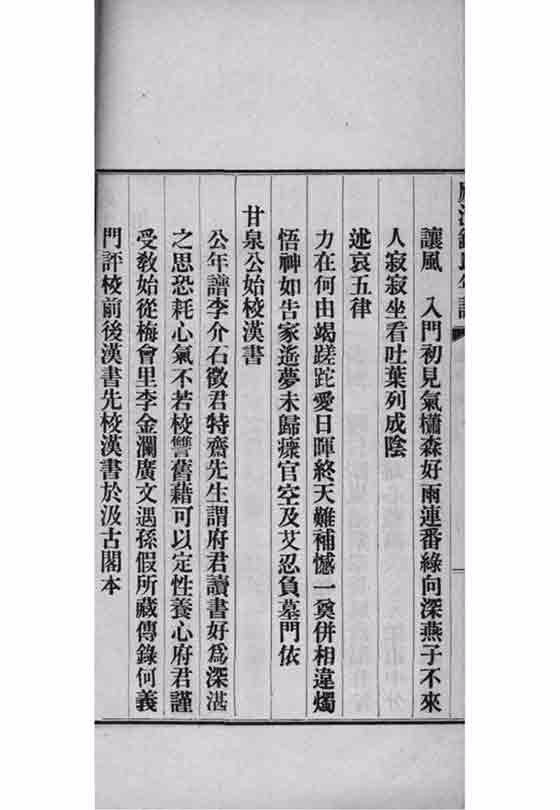 讓風　入門初見氣櫹森好雨連番綠向深燕子不來
人寂寂坐看吐葉列成陰
述哀五律
力在何由竭蹉跎愛日暉終天難補憾一奠併相違燭
悟神如告家遙夢未歸瘝官空及艾忍負墓門依
甘泉公始校漢書
公年譜李介石徵君特齋先生謂府君讀書好為深湛
之思恐耗心氣不若校讐舊藉可以定性養心府君謹
受敎始從梅會里李金瀾廣文遇孫假所藏傳錄何義
門評校前後漢書先校漢書於汲古閣本